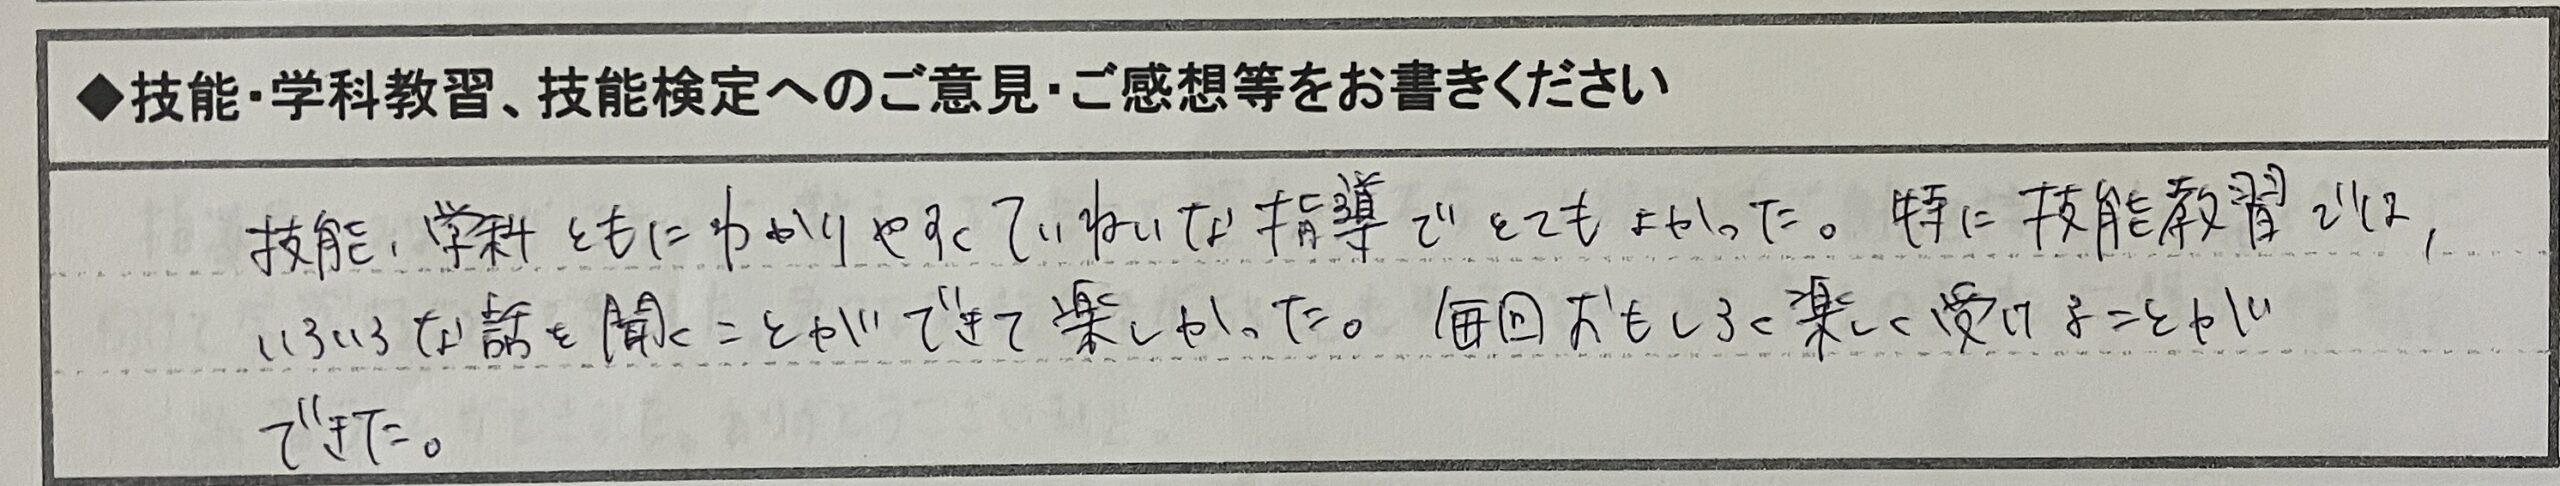 ◆技能・学科教習、技能検定へのご意見・ご感想等をお書きください
技能、学科ともにわかりやすくていねいな指導でとてもよかった。特に技能教習では,
いろいろな話を聞くことができて楽しかった。毎回おもしろく楽しく受けることが
できた。